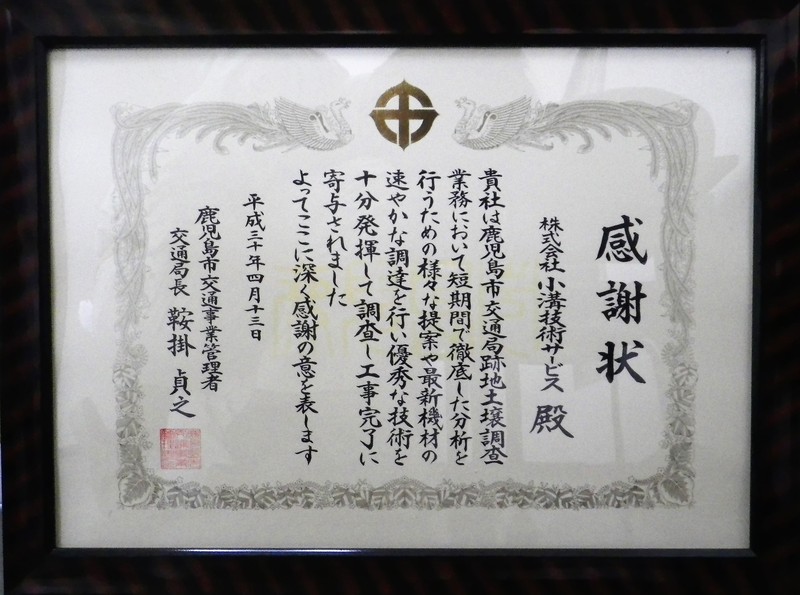 感謝状
株式会社小溝技術サービス 殿
貴社は鹿児島市交通局跡地土壌調査
業務において短期間で徹底した分析を
行うための様々な提案や最新機材の
速やかな調達を行い優秀な技術を
十分発揮して調査し工事完了に
寄与されました
よってここに深く感謝の意を表します
平成三十年四月十三日
鹿児島市交通事業管理者
交通局長 鞍掛貞之